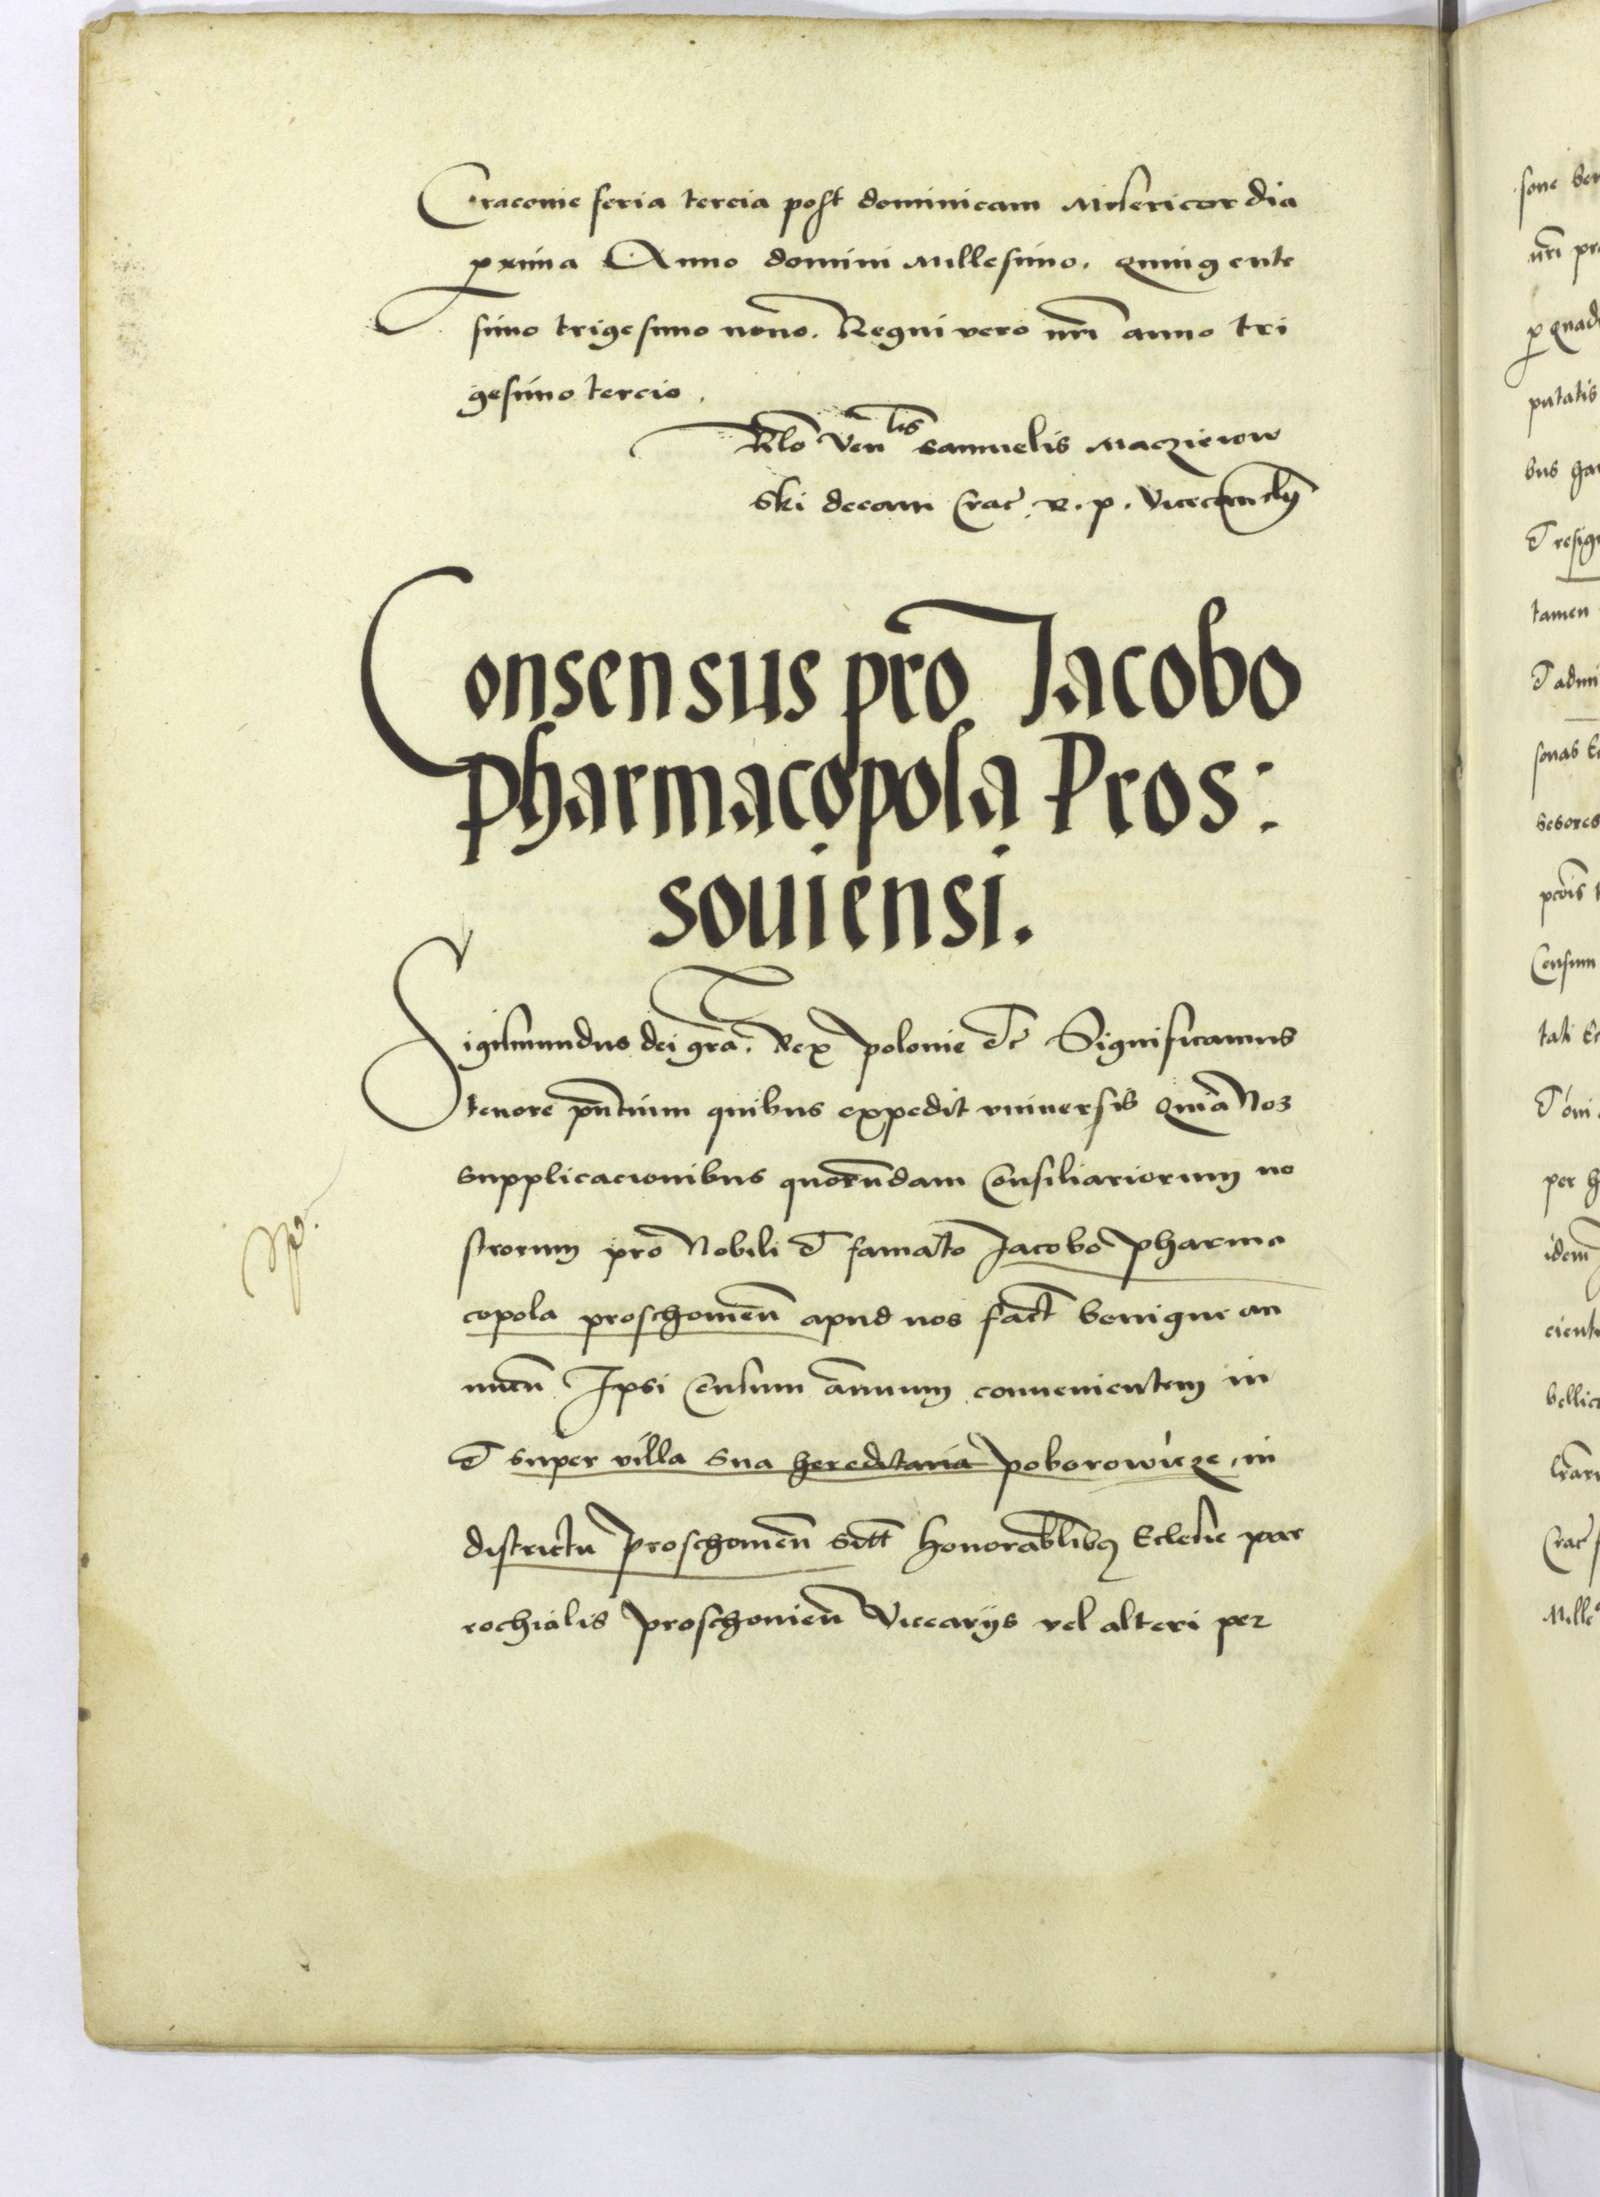 Cracovie feria tercia post dominicam Misericordia
pxima Anno domini Millesimo. Quingente
simo trigesimo nono. Regni vero nri anno tri
gesimo tercio.
Rlo Venlis Samuelis Macziejow
ski decani Crac R. p. Vicecancly
Consensus pro Jacobo
Pharmacopola Pros:
soviensi.
Sigismundus dei gra. Rex Polonie etc Significamus
tenore pntium quibus expedit universis Quia Nos
supplicacionibus quorundam Consiliariorum no
strorum pro Nobili et famato Jacobo Pharma
copola proschovien apud nos fact benigne an
nuen Ipsi Censum annuum convenientem in
et super villa sua hereditaria Poborowicze, in
districtu Proschovien sitt Honorablibus Ecclesie par
rochialis Proschovien Viccarijs vel alteri per
sone
nri
p quad
putatis
bus
et
tamen
et
sonas
sessores
Censum
et
per
idem
Crac